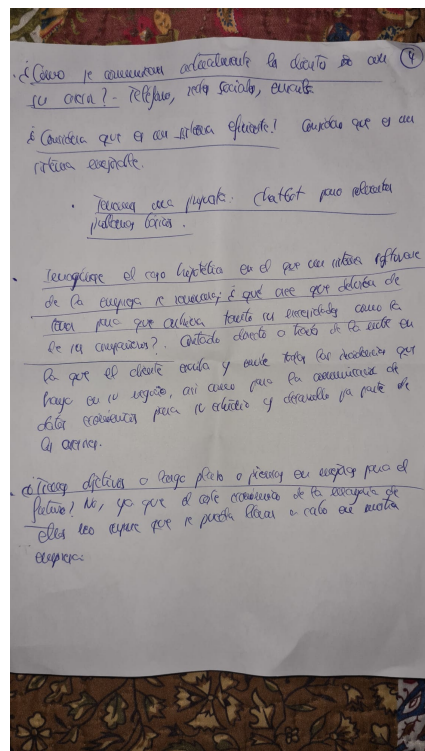 ¿Cómo se comunican actualmente los clientes con 4
su área? - Teléfono, redes sociales, email.
¿Considera que es un sistema eficiente? Considero que es un
sistema mejorable.
· Tenemos una propuesta. Chatbot para solventar
problemas básicos.
· Imagínese el caso hipotético en el que un sistema software
de la empresa se renueva; ¿qué cree que debería de
tener para que cubriera tanto sus necesidades como la
de sus compañeros? Contacto directo a través de la web en
la que el cliente escriba y envíe todas las incidencias que
haya en su negocio, así como para la comunicación de
datos económicos para su estudio y desarrollo por parte de
las asesores.
· ¿Tienes objetivos a largo plazo o piensas en mejoras para el
futuro? No, ya que el coste económico de la mayoría de
ellas no supone que se pueda llevar a cabo en nuestra
empresa.